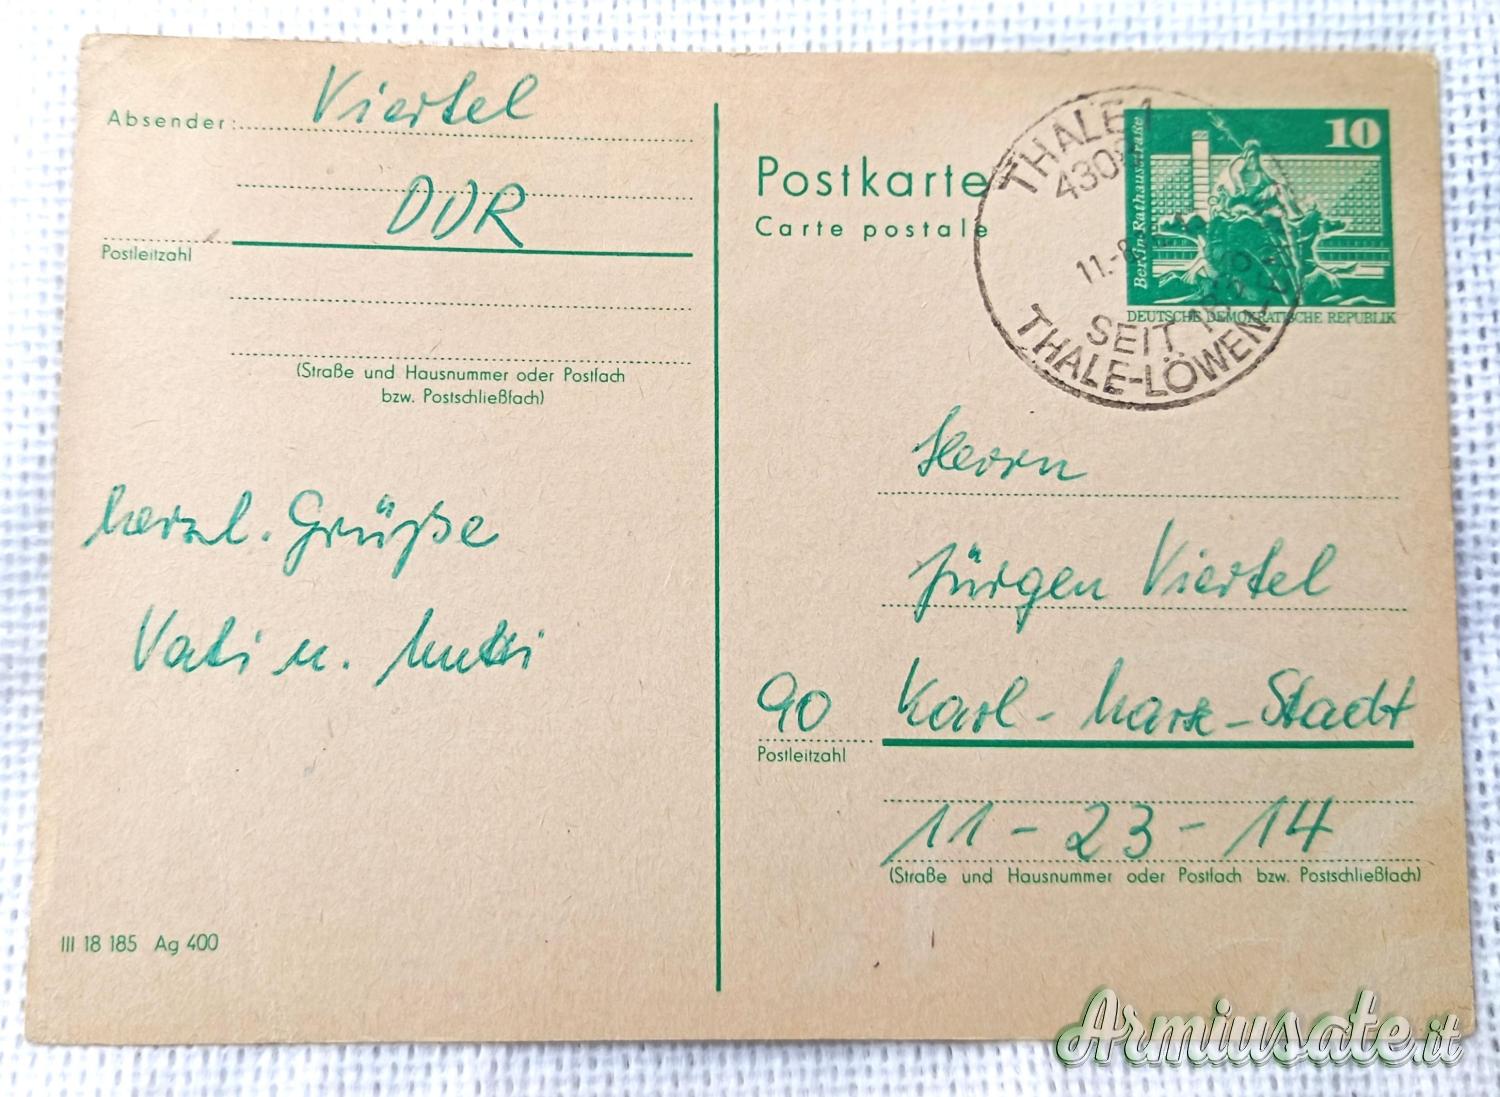 Absender: Viertel
DDR
Postleitzahl
(Straße und Hausnummer oder Postfach
bzw. Postschließfach)
herzl. Grüße
Vati u. Mutti
III 18 185 Ag 400
Postkarte
Carte postale
THALE 1
430
11.-8
SEIT
THALE-LÖWEN
10
Berlin-Rathausstraße
DEUTSCHE DEMOKRATISCHE REPUBLIK
Herrn
Jürgen Viertel
90 Karl-Marx-Stadt
Postleitzahl
11-23-14
(Straße und Hausnummer oder Postfach bzw. Postschließfach)
Armiusate.it